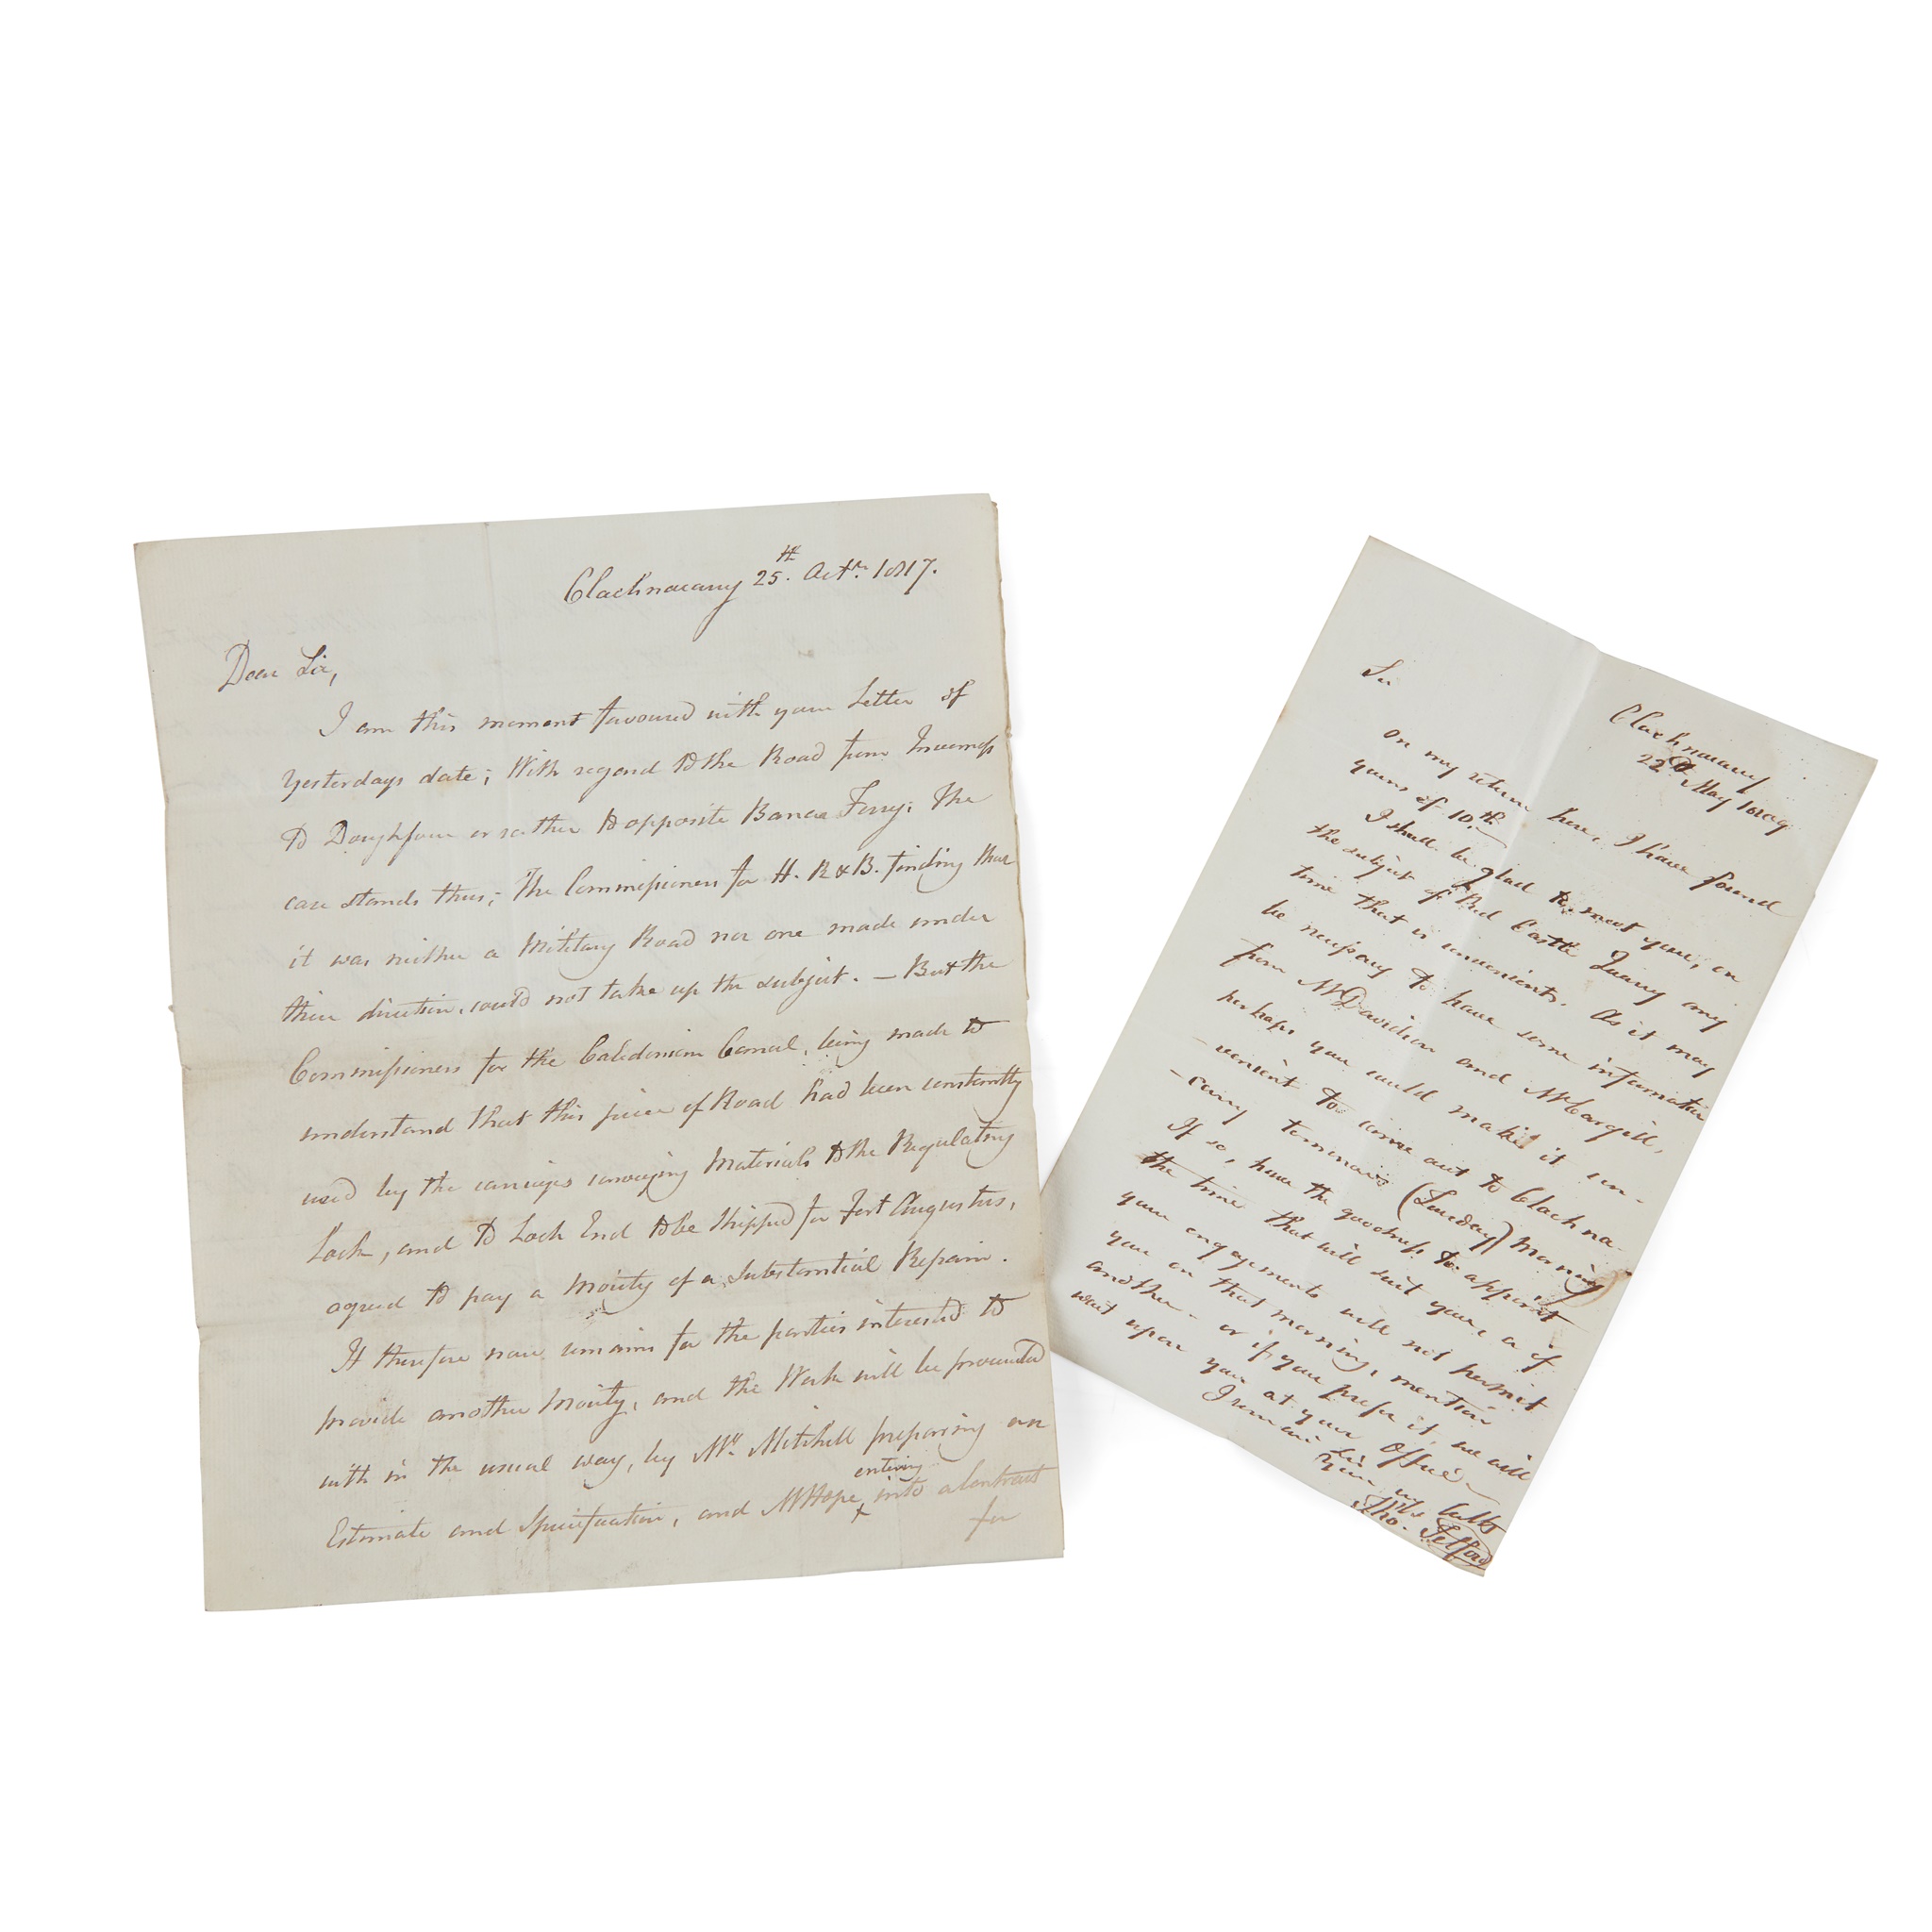 Clachnacarry 25th. Octr. 1817.
Dear Sir,
I am this moment favoured with your Letter of
Yesterdays date; With regard to the Road from Inverness
to Doughfour or rather to opposite Banca Ferry; The
case stands thus; The Commissioners for H. R & B. finding that
it was neither a Military Road nor one made under
their direction, could not take up the subject. — But the
Commissioners for the Caledonian Canal, being made to
understand that this piece of Road had been constantly
used by the carriages conveying Materials to the Regulating
Lock, and to Loch End to be Shipped for Fort Augustus,
agreed to pay a Moiety of a Substantial Repair.
It therefore now remains for the parties interested to
provide another Moiety, and the Work will be proceeded
with in the usual way, by Mr. Mitchell preparing an
entering
Estimate and Specification, and Mr Hope into a Contract
for
Clachnacarry
22d May
Sir
On my return here, I have found
yours of 10th.
I shall be glad to meet you, on
the subject of Red Castle Quarry any
time that is convenient. As it may
be necessary to have some information
from Mr Davidson and Mr Cargill,
perhaps you could make it con-
-venient to come out to Clachna-
-carry tomorrow (Sunday) Morning
If so, have the goodness to appoint
the time that will suit you, & if
your engagements will not permit
you on that morning, mention
another - or if you prefer it, we will
wait upon you at your Office
I remain Sir
Your
Tho. Telford